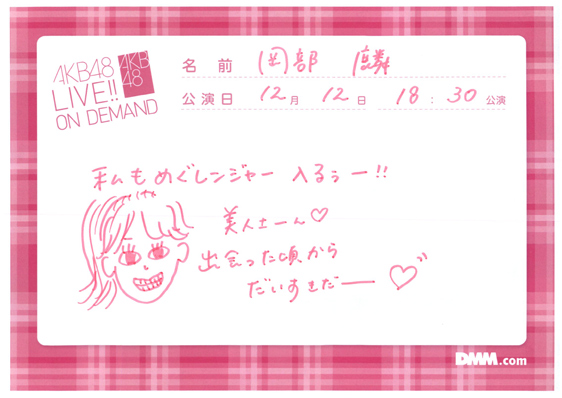 AKB48
LIVE!!
ON DEMAND
AKB
48
名前 岡部 麟
公演日 12月 12日 18:30公演
私もめぐレンジャー 入るぅー!!
美人さーん♡
出会った頃から
だいすきだー♡
DMM.com